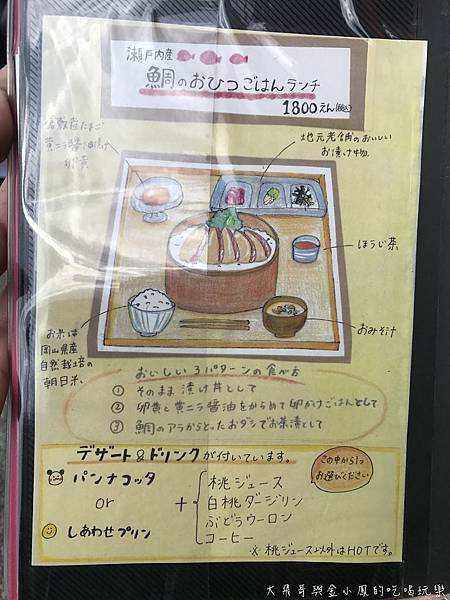 瀬戸内産
鯛のおひつごはんランチ
1800えん(税込)
倉敷産たまご
黄ニラ醤油漬け
地元老舗のおいしい
お漬け物
ほうじ茶
お米は
岡山県産
自然栽培の
朝日米。
おみそ汁
おいしい3パターンの食べ方
① そのまま 漬け丼として
② 卵黄と黄ニラ醤油をからめて卵かけごはんとして
③ 鯛のアラからとったおダシでお茶漬として
デザート&ドリンクが付いています。
この中から1つ
お選びください
パンナコッタ
or
しあわせプリン
+
桃ジュース
白桃ダージリン
ぶどうウーロン
コーヒー
※桃ジュース以外はHOTです。
大飛哥與金小鳳的吃喝玩樂